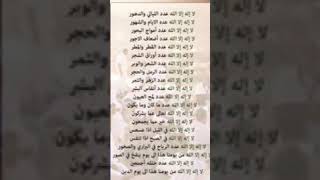 لا إله إلا الله عدد الليالي والدهور
لا إله إلا الله عدد الايام والشهور
لا إله إلا الله عدد أمواج البحور
لا إله إلا الله عدد أضعاف الاجور
لا إله إلا الله عدد القطر والمطر
لا إله إلا الله عدد أوراق الشجر
لا إله إلا الله عدد الشعر والوبر
لا إله إلا الله عدد الرمل والحجر
لا إله إلا الله عدد الزهر والثمر
لا إله إلا الله عدد أنفاس البشر
لا إله إلا الله عدد لمح العيون
لا إله إلا الله عدد ما كان وما يكون
لا إله إلا الله تعالى عما يشركون
لا إله إلا الله خير مما يجمعون
لا إله إلا الله في الليل اذا عسعس
لا إله إلا الله في الصبح اذا تنفس
لا إله إلا الله عدد الرياح في البراري والصخور
لا إله إلا الله من يومنا هذا إلى يوم ينفخ في الصور
لا إله إلا الله عدد خلقه أجمعين
لا إله إلا الله من يومنا هذا إلى يوم الدين